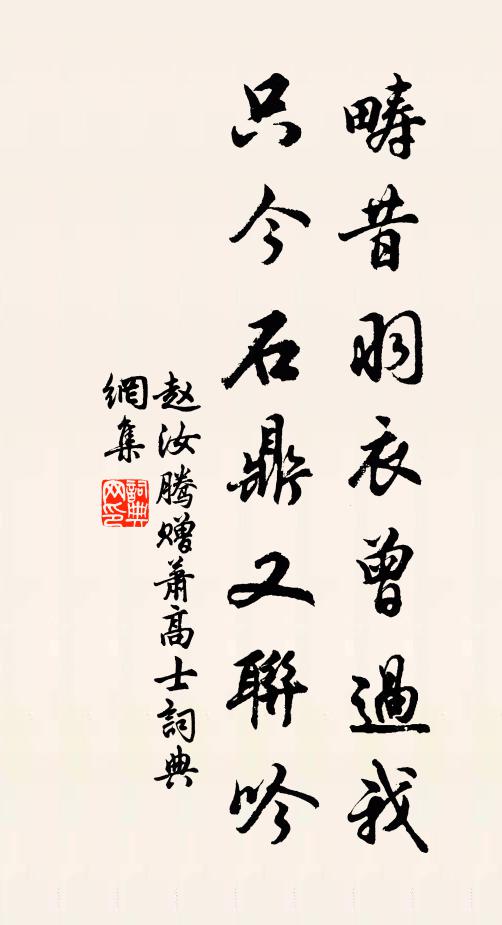 疇昔羽衣曾過我
只今石鼎又聯吟
赵汝騰贈蕭高士詞典
網集
詞典網印